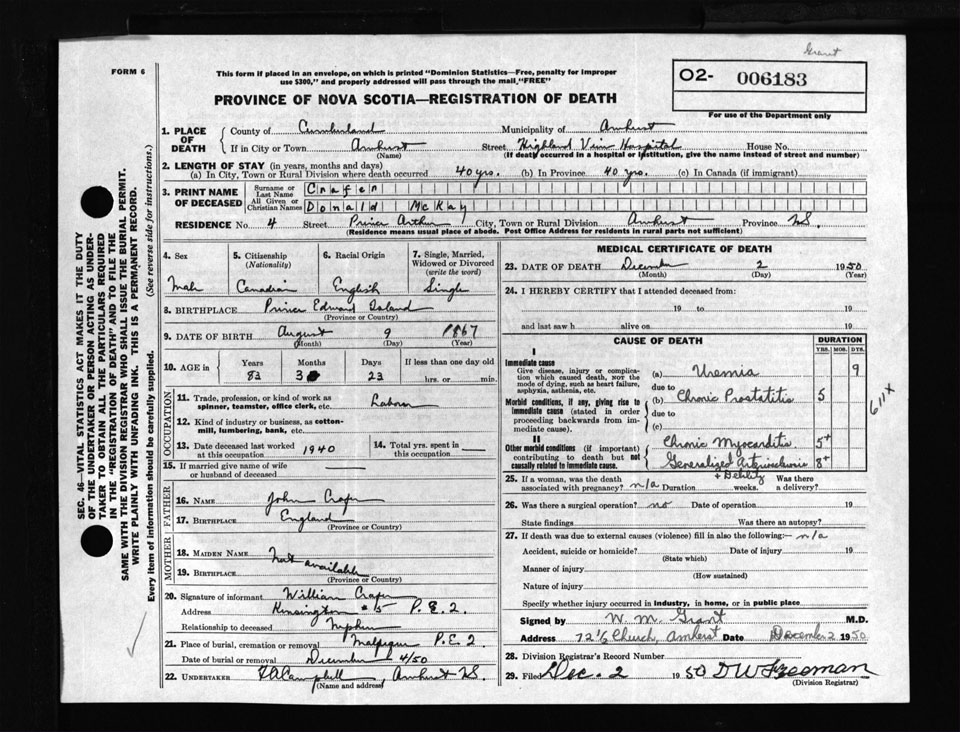 Grant
FORM 6
This form if placed in an envelope, on which is printed "Dominion Statistics—Free, penalty for improper
use $300," and properly addressed will pass through the mail, "FREE"
O2- 006183
For use of the Department only
PROVINCE OF NOVA SCOTIA—REGISTRATION OF DEATH
1. PLACE OF DEATH County of Cumberland Municipality of Amherst
If in City or Town Amherst Street Highland View Hospital House No.
(Name) (If death occurred in a hospital or institution, give the name instead of street and number)
2. LENGTH OF STAY (in years, months and days)
(a) In City, Town or Rural Division where death occurred 40 yrs. (b) In Province 40 yrs. (c) In Canada (if immigrant)
3. PRINT NAME OF DECEASED Surname or Last Name Crafer
All Given or Christian Names Donald McKay
RESIDENCE No. 4 Street Prince Arthur City, Town or Rural Division Amherst Province N.S.
(Residence means usual place of abode. Post Office Address for residents in rural parts not sufficient)
4. Sex Male
5. Citizenship (Nationality) Canadian
6. Racial Origin English
7. Single, Married, Widowed or Divorced (write the word) Single
8. BIRTHPLACE Prince Edward Island
(Province or Country)
9. DATE OF BIRTH August 9 1867
(Month) (Day) (Year)
10. AGE in Years Months Days If less than one day old
83 3 23 hrs. or min.
OCCUPATION
11. Trade, profession, or kind of work as spinner, teamster, office clerk, etc. Laborer
12. Kind of industry or business, as cotton-mill, lumbering, bank, etc.
13. Date deceased last worked at this occupation 1940 14. Total yrs. spent in this occupation
15. If married give name of wife or husband of deceased
FATHER
16. NAME John Crafer
17. BIRTHPLACE England
(Province or Country)
MOTHER
18. MAIDEN NAME Not available
19. BIRTHPLACE
(Province or Country)
20. Signature of informant William Crafer
Address Kensington #5 P.E.I.
Relationship to deceased Nephew
21. Place of burial, cremation or removal Malpeque P.E.I.
Date of burial or removal December 4/50
22. UNDERTAKER Campbell, Amherst N.S.
(Name and address)
MEDICAL CERTIFICATE OF DEATH
23. DATE OF DEATH December 2 1950
(Month) (Day) (Year)
24. I HEREBY CERTIFY that I attended deceased from:
19 to 19
and last saw h alive on 19
CAUSE OF DEATH DURATION
YRS. MOS. DYS.
I
Immediate cause
Give disease, injury or complication which caused death, not the mode of dying, such as heart failure, asphyxia, asthenia, etc.
(a) Uremia 9
due to
Morbid conditions, if any, giving rise to immediate cause (stated in order proceeding backwards from immediate cause).
(b) Chronic Prostatitis 5
due to
(c)
611x
II
Other morbid conditions (if important) contributing to death but not causally related to immediate cause.
Chronic Myocarditis 5+
Generalized Arteriosclerosis 8+
+ Debility
25. If a woman, was the death associated with pregnancy? n/a Duration weeks. Was there a delivery?
26. Was there a surgical operation? no Date of operation 19
State findings Was there an autopsy?
27. If death was due to external causes (violence) fill in also the following:— n/a
Accident, suicide or homicide? Date of injury 19
(State which)
Manner of injury
(How sustained)
Nature of injury
Specify whether injury occurred in industry, in home, or in public place
Signed by W. M. Grant M.D.
Address 72 1/2 Church, Amherst Date December 2 1950
28. Division Registrar's Record Number
29. Filed Dec. 2 1950 D W Freeman
(Division Registrar)
SEC. 46—VITAL STATISTICS ACT MAKES IT THE DUTY
OF THE UNDERTAKER OR PERSON ACTING AS UNDERTAKER
TO OBTAIN ALL THE PARTICULARS REQUIRED
IN THE "REGISTRATION OF DEATH" AND TO FILE THE
SAME WITH THE DIVISION REGISTRAR WHO SHALL ISSUE THE BURIAL PERMIT.
WRITE PLAINLY WITH UNFADING INK. THIS IS A PERMANENT RECORD.
Every item of information should be carefully supplied. (See reverse side for instructions.)